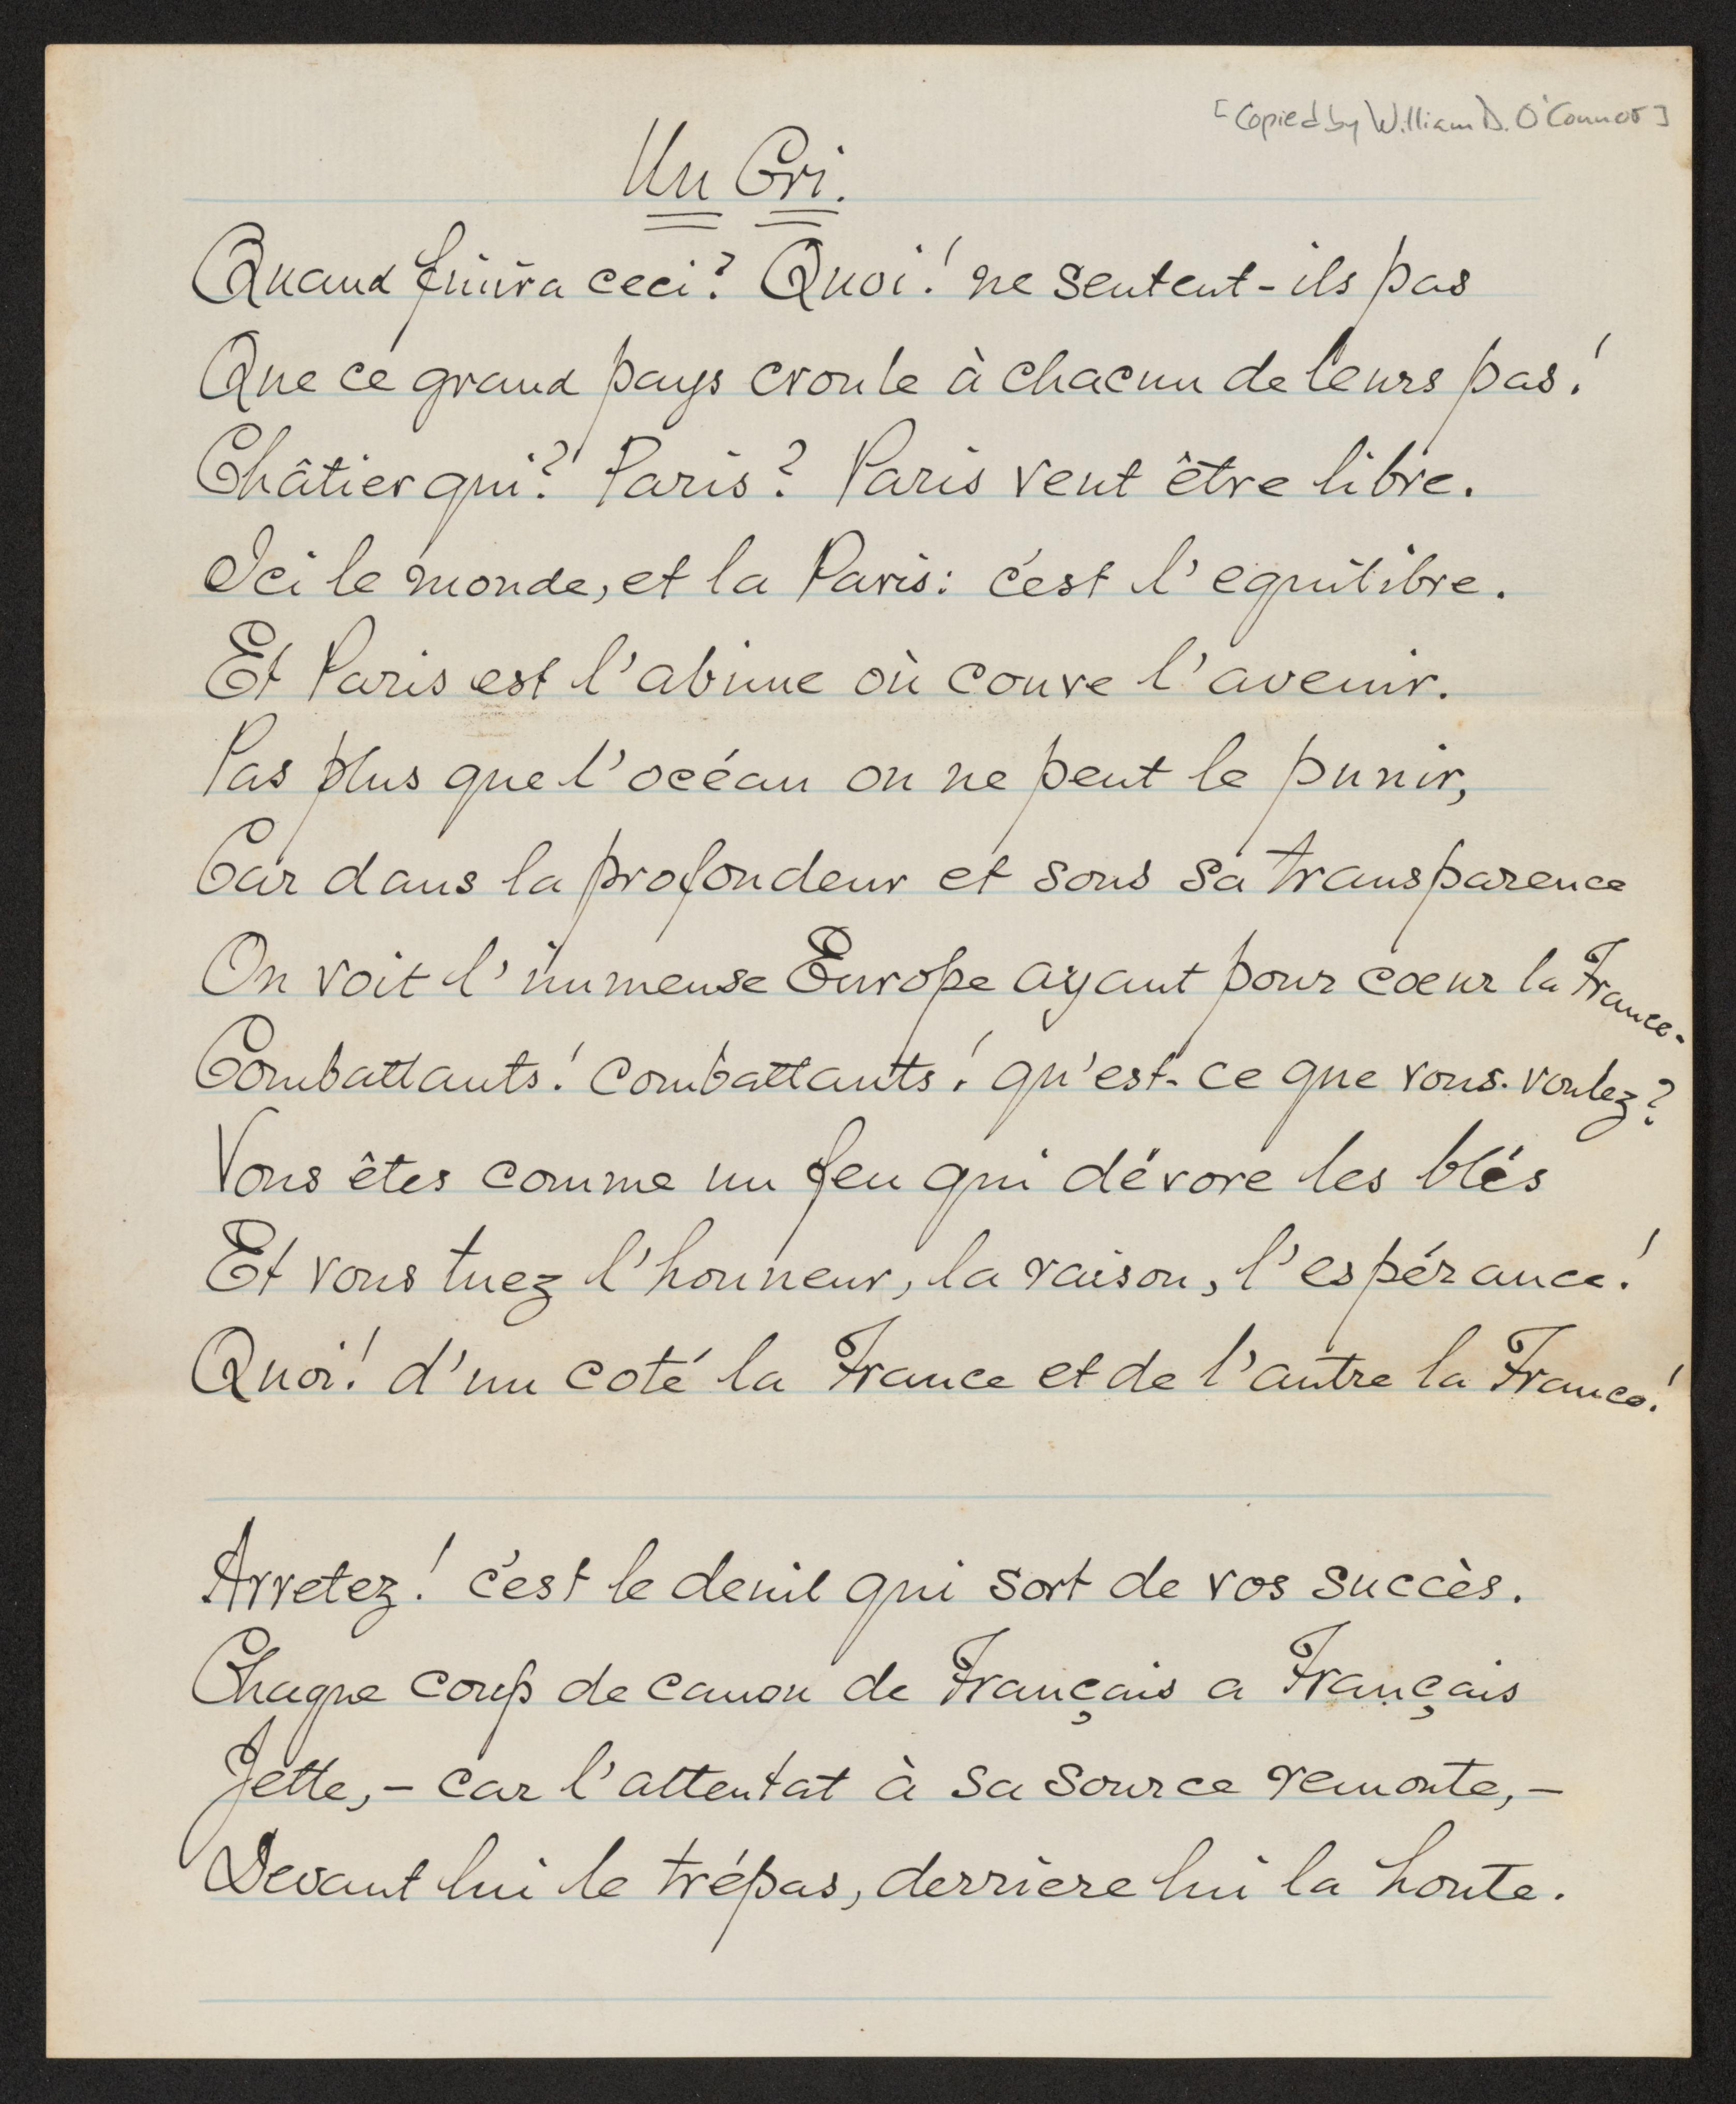 [Copied by William D. O'Connor]
Un Cri.
Quand finira ceci? Quoi! ne sentent-ils pas
Que ce grand pays croule à chacun de leurs pas!
Châtier qui? Paris? Paris veut être libre.
Ici le monde, et la Paris: c'est l'equilibre.
Et Paris est l'abime où couve l'avenir.
Pas plus que l'océan on ne peut le punir,
Car dans la profondeur et sous sa transparence
On voit l'immense Europe ayant pour cœur la France.
Combattants! combattants! qu'est-ce que vous voulez?
Vous êtes comme un feu qui dévore les blés
Et vous tuez l'honneur, la raison, l'espérance!
Quoi! d'un coté la France et de l'autre la France!
Arretez! c'est le deuil qui sort de vos succès.
Chaque coup de canon de Français a Français
Jette, – car l'attentat à sa source remonte, –
Devant lui le trépas, derriere lui la honte.